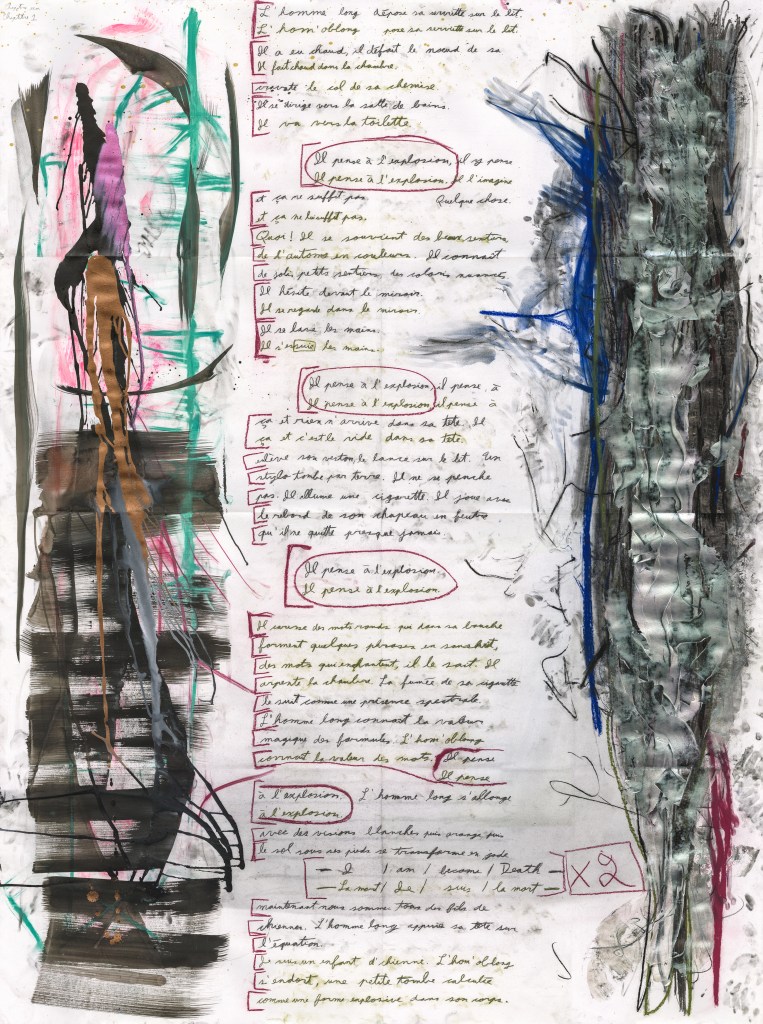 L'homme long dépose sa serviette sur le lit.
L'hom'oblong pose sa serviette sur le lit.
Il a eu chaud, il défait le noeud de sa
Il fait chaud dans la chambre.
cravate le col de sa chemise.
Il se dirige vers la salle de bains.
Il va vers la toilette
Il pense à l'explosion, il y pense
Il pense à l'explosion, il l'imagine
et ça ne suffit pas Quelque chose.
et ça ne suffit pas.
Quoi! Il se souvient des beaux sentiers
de l'automne en couleurs. Il connait
de jolis petits sentiers, des coloris
Il hésite devant le miroir.
Il se regarde dans le miroir.
Il se lave les mains.
Il s'essuie les mains.
Il pense à l'explosion, il pense à
Il pense à l'explosion, il pense à
ça et rien n'arrive dans sa tête. Il
ça et c'est le vide dans sa tête.
enlève son veston, le lance sur le lit. Un
stylo tombe par terre. Il ne se penche
pas. Il allume une cigarette. Il joue avec
le rebord de son chapeau en feutre
qu'il ne quitte presque jamais.
Il pense à l'explosion.
Il pense à l'explosion.
Il des mots ronds qui dans sa bouche
forment quelques phrases en sanskrit,
des mots qui enchantent, il le sait. Il
arpente la chambre. La fumée de sa cigarette
le suit comme une présence spectrale.
L'homme long connait la valeur
magique des formules. L'hom'oblong
connait la valeur des mots. Il pense
Il pense
à l'explosion. L'homme long s'allonge
à l'explosion
avec des visions blanches puis orange puis
le sol sous ses pieds se transforme en jade
— I / am / become / Death —
— La mort / De / suis / la mort — X2
maintenant nous sommes tous des fils de
chiennes. L'homme long appuie sa tête sur
l'équation.
Je suis un enfant d'chienne. L'hom'oblong
s'endort, une petite tombe calcutée
comme une forme explosive dans son corps.